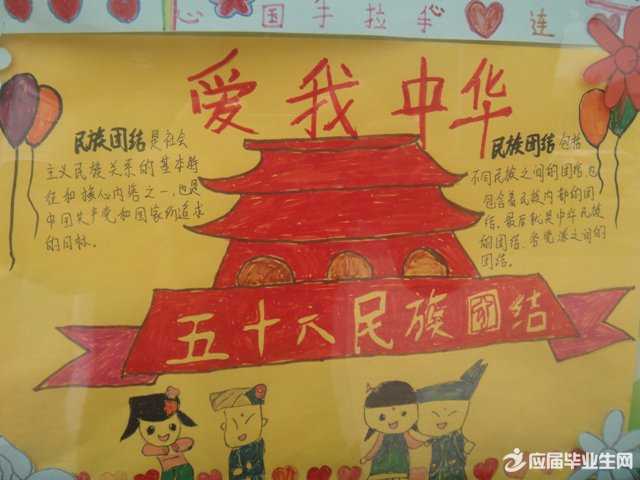 心 国 手 拉 手 连
爱我中华
民族团结是社会
主义民族关系的基本特
征和核心内容之一,也是
中国共产党和国家所追求
的目标。
民族团结包括
不同民族之间的团结,也
包含着民族内部的团
结。最后就是中华民族
的团结、各党派之间的
团结。
五十六民族团结
应届毕业生网